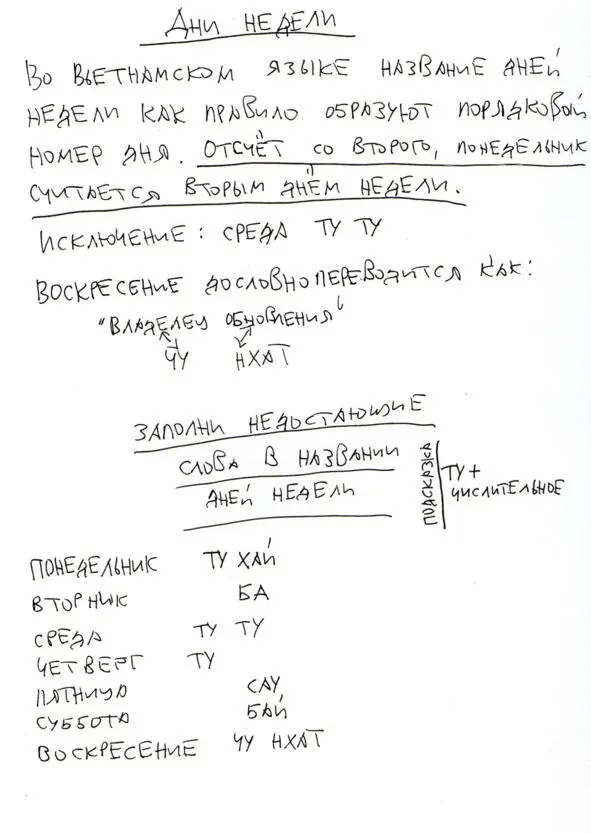 Дни недели
Во вьетнамском языке название дней
недели как правило образуют порядковой
номер дня. Отсчёт со второго, понедельник
считается вторым днём недели.
Исключение: среда ту ту
Воскресение дословно переводится как:
"Владелец обновления"
чу нхат
Заполни недостающие
слова в названии
дней недели
подсказка
ту +
числительное
понедельник ту хай
вторник ба
среда ту ту
четверг ту
пятница сау
суббота бай
воскресение чу нхат